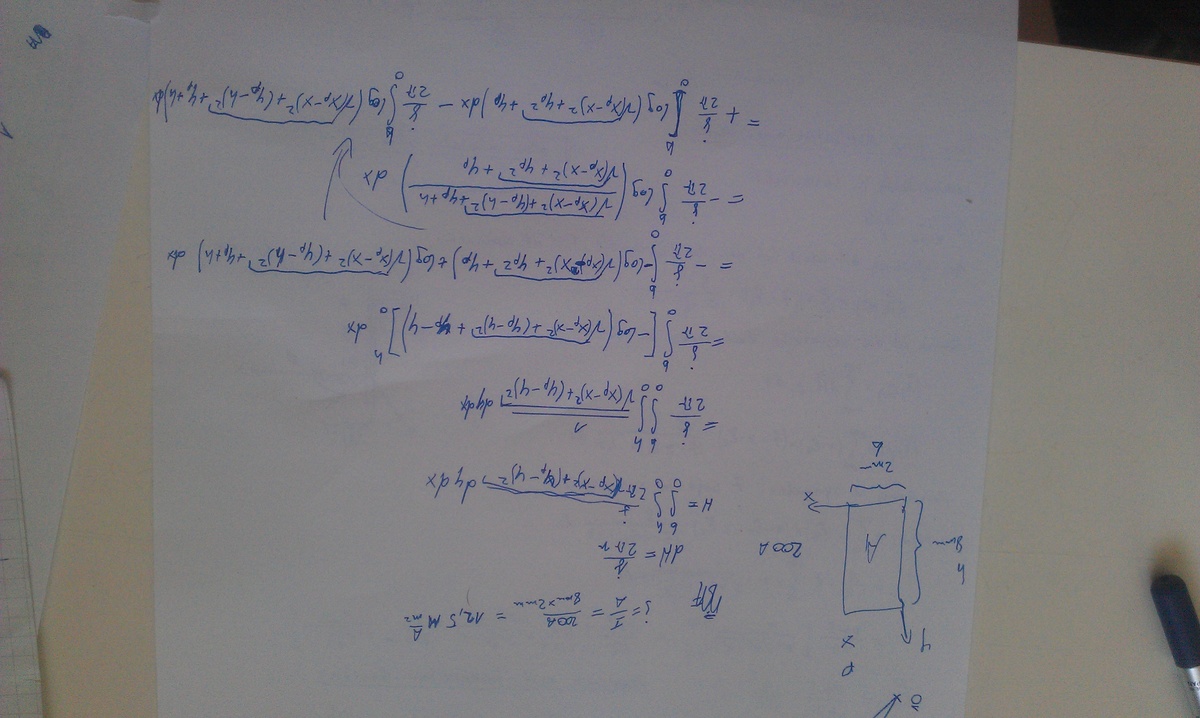 x ō
P
x y
A
h
8mm
200A
x
2mm
b
j = I/A = 200A/(8mm × 2mm) = 12,5 M A/m²
dH = j/(2π r)
H = ∫₀ᵇ ∫₀ʰ j/(2π √((xp-x)²+(yp-y)²)) dy dx
= j/2π ∫₀ᵇ ∫₀ʰ 1/√((xp-x)²+(yp-y)²) dy dx
= j/2π ∫₀ᵇ [-log(√((xp-x)²+(yp-y)²) + yp-y)]₀ʰ dx
= - j/2π ∫₀ᵇ -log(√((xp-x)²+yp²) + yp) + log(√((xp-x)²+(yp-h)²) + yp+h) dx
= - j/2π ∫₀ᵇ log( (√((xp-x)²+(yp-h)²) + yp+h) / (√((xp-x)²+yp²) + yp) ) dx
= + j/2π ∫₀ᵇ log(√((xp-x)²+yp²) + yp) dx - j/2π ∫₀ᵇ log(√((xp-x)²+(yp-h)²) + yp+h) dx